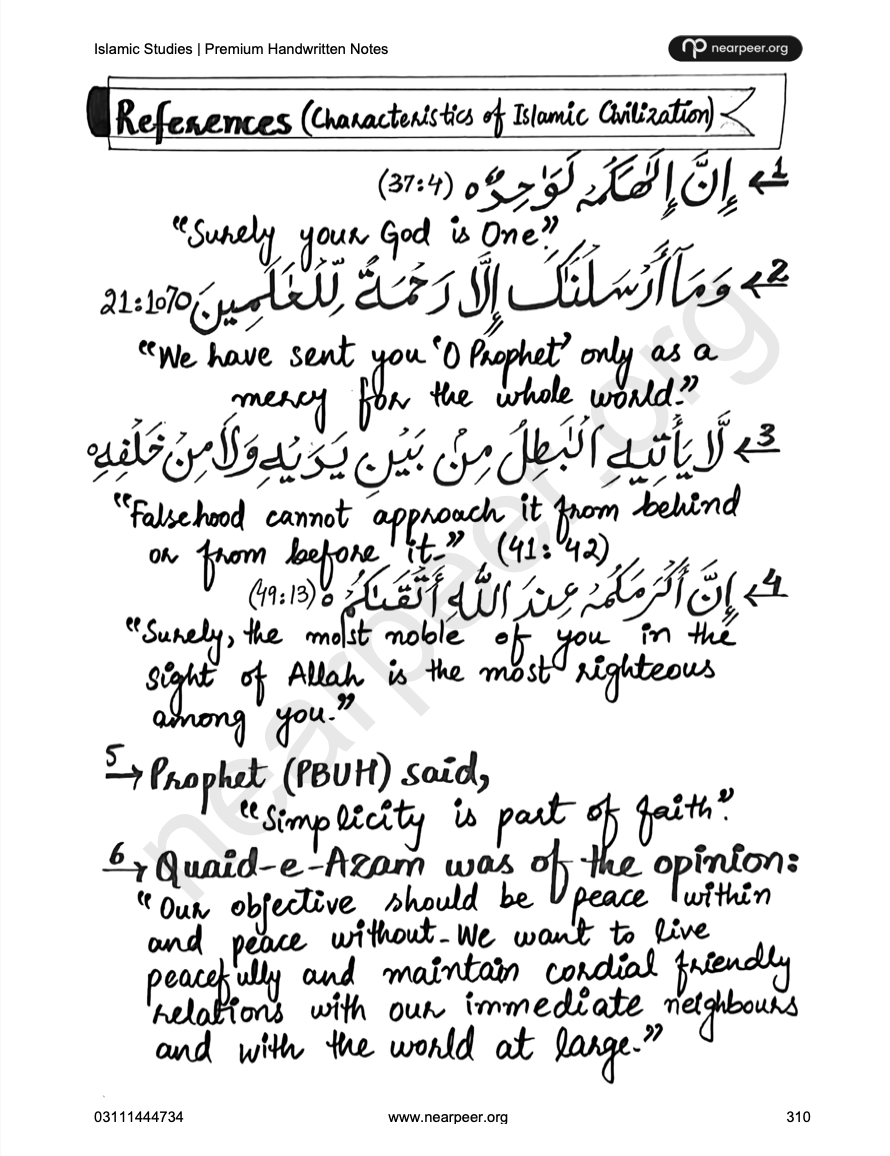 Islamic Studies | Premium Handwritten Notes
nearpeer.org
References (Characteristics of Islamic Civilization)
1 إِنَّ إِلَٰهَكُمْ لَوَاحِدٌ (37:4)
"Surely your God is One".
2 وَمَآ أَرْسَلْنَٰكَ إِلَّا رَحْمَةً لِّلْعَٰلَمِينَ 21:1070
"We have sent you 'O Prophet' only as a
mercy for the whole world."
3 لَّا يَأْتِيهِ الْبَٰطِلُ مِنْ بَيْنِ يَدَيْهِ وَلَا مِنْ خَلْفِهِ
"Falsehood cannot approach it from behind
or from before it." (41:42)
4 إِنَّ أَكْرَمَكُمْ عِندَ اللَّهِ أَتْقَىٰكُمْ (49:13)
"Surely, the most noble of you in the
sight of Allah is the most righteous
among you."
5 → Prophet (PBUH) said,
"Simplicity is part of faith".
6 → Quaid-e-Azam was of the opinion:
"Our objective should be peace within
and peace without. We want to live
peacefully and maintain cordial friendly
relations with our immediate neighbours
and with the world at large."
nearpeer.org
03111444734 www.nearpeer.org 310